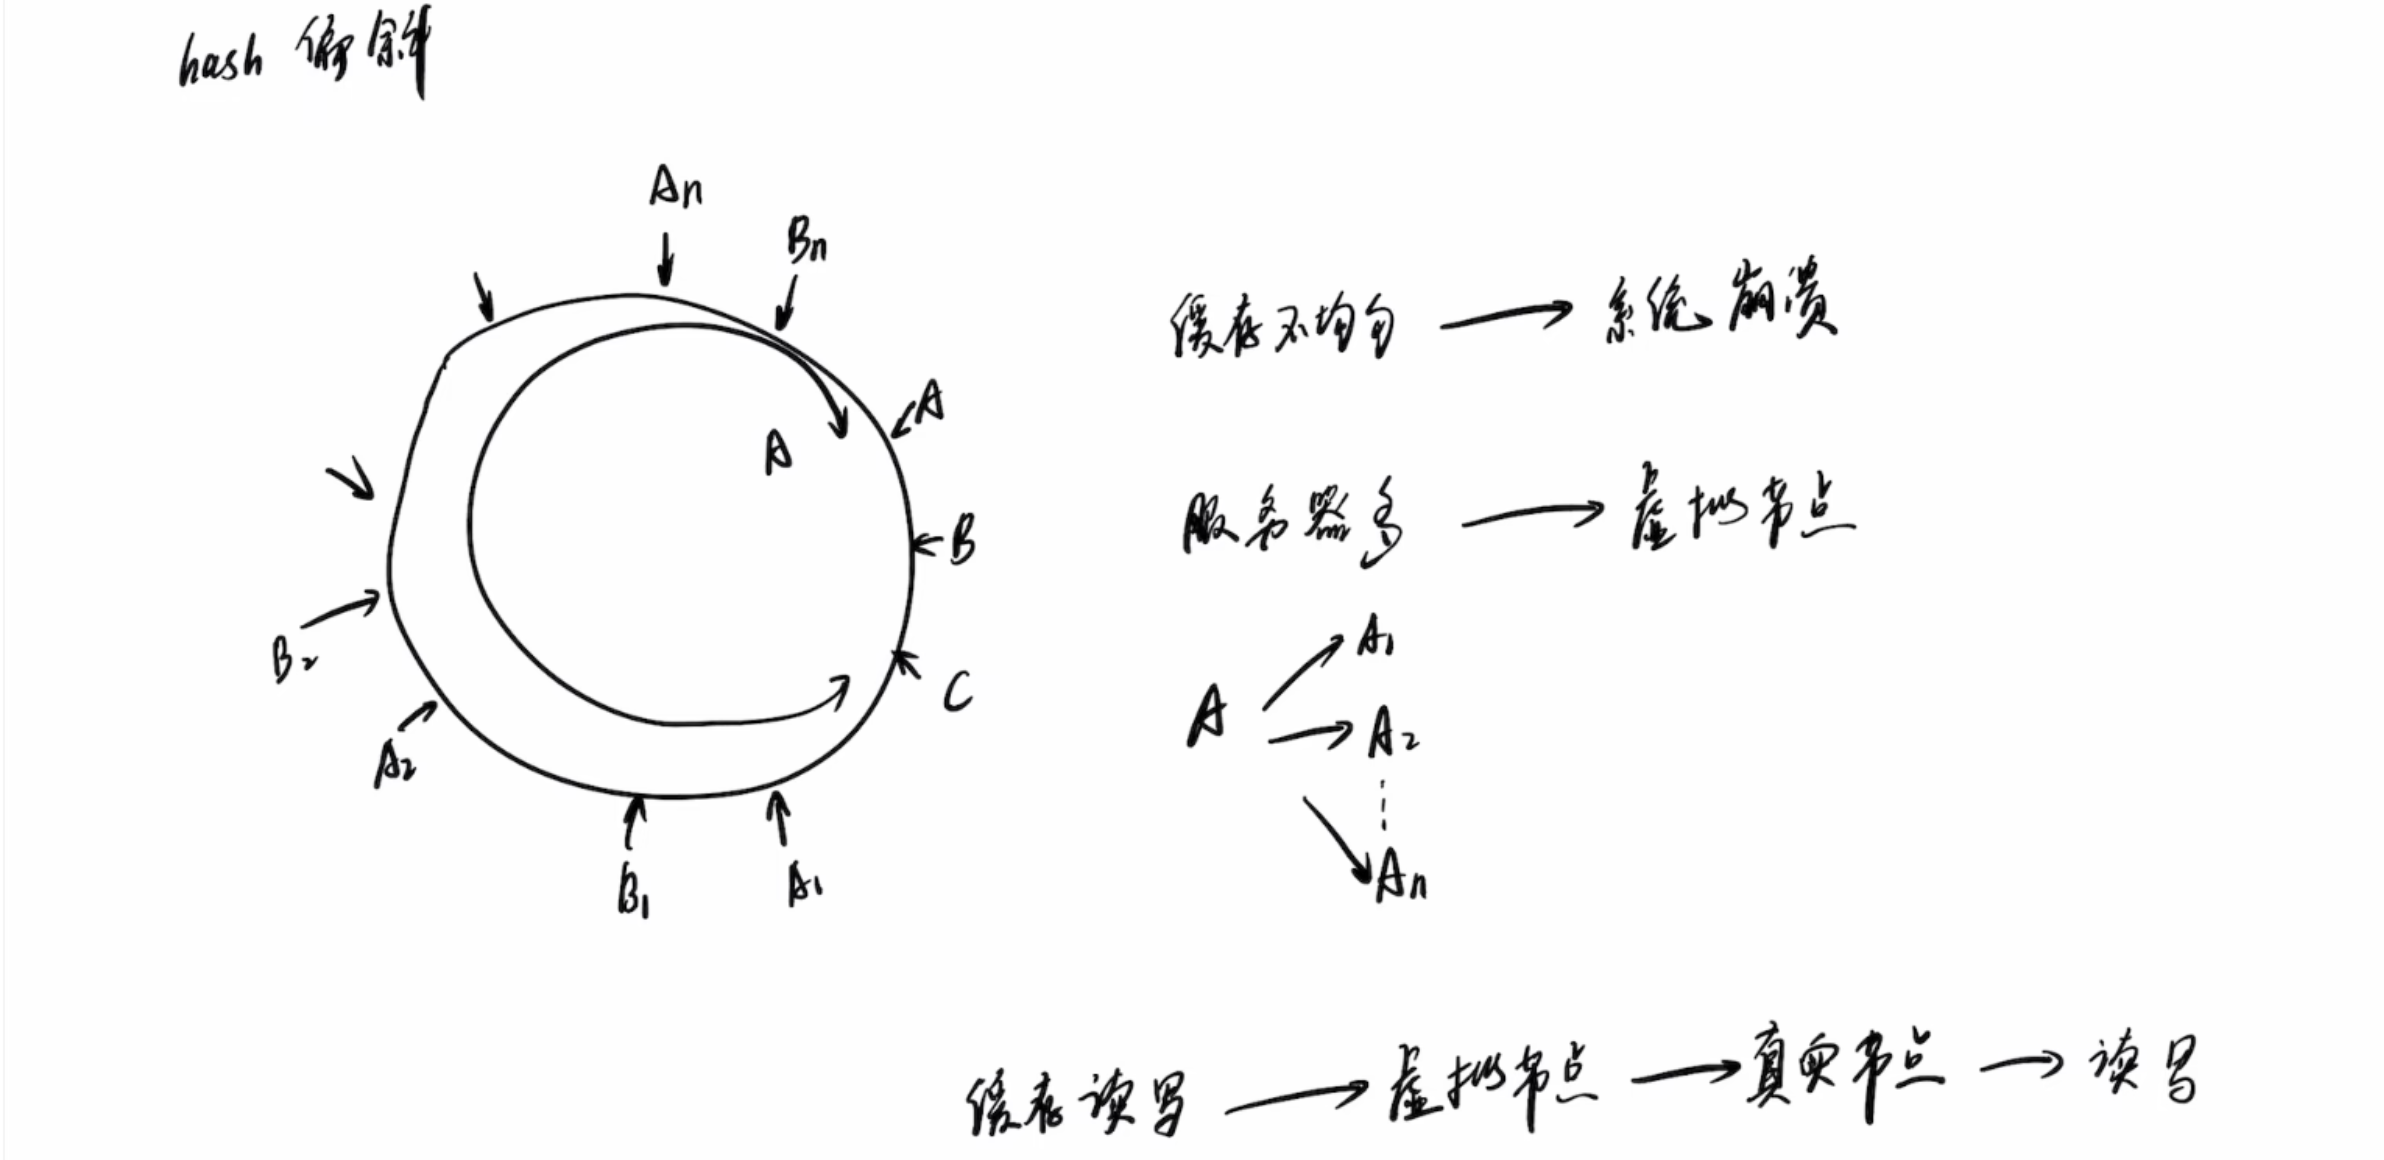 hash 偏斜
An
Bn
A
A
B
C
B2
A2
B1
A1
缓存不均匀 → 系统崩溃
服务器多 → 虚拟节点
A1
A → A2
An
缓存读写 → 虚拟节点 → 真实节点 → 读写